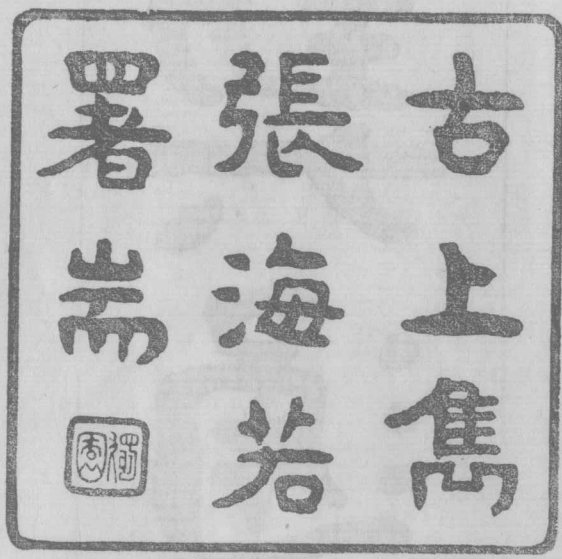 古上雋
張海若
署耑